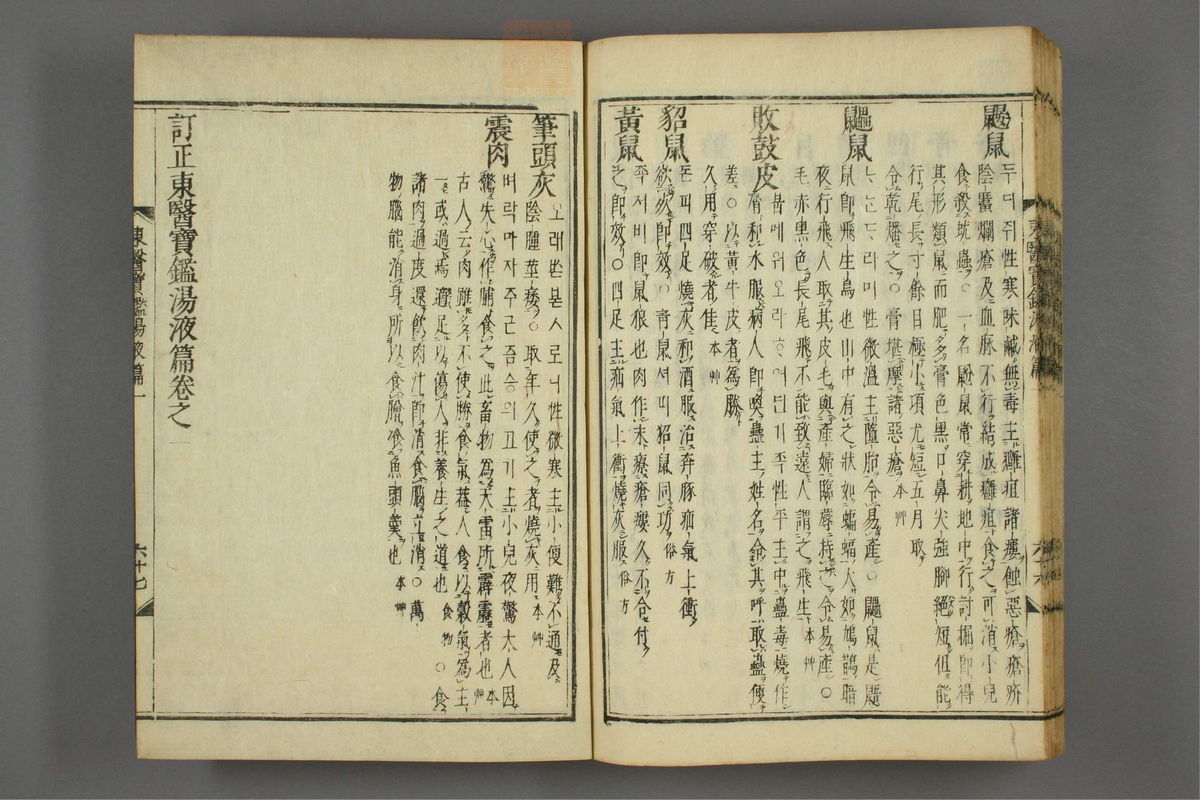 鼴鼠
두더쥐性寒味鹹無毒主癰疽諸瘻蝕惡瘡瘡疥
陰䘌爛瘡及血脉不行結成癰疽食之可消小兒
食殺蚘蟲○一名鼢鼠常穿耕地中行討掘卽得
其形類鼠而肥多膏色黑口鼻尖強腳絕短但能
行尾長寸餘目極小項尤短五月取
令乾燔之○膏堪摩諸惡瘡本艸
鼺鼠
性微溫主墮胎令易產○鼺鼠是鼯
鼠卽飛生鳥也山中有之狀如蝙蝠大如鴆鵲暗
夜行飛人取其皮毛與產婦臨蓐持之令易產○
毛赤黑色長尾飛不能致遠人謂之飛生本艸
敗鼓皮
性平主中蠱毒燒作
屑和水服病人卽喚蠱主姓名令其呼取蠱便
差○以黃牛皮者爲勝
久用穿破者佳本艸
貂鼠
돈피四足燒灰和酒服治奔豚疝氣上衝
欲死卽效○靑鼠셔피貂鼠同功俗方
黃鼠
죡져비卽鼠狼也肉作末療瘡瘻久不合付
之卽效○四足主疝氣上衝燒灰服俗方
東醫寶鑑湯液篇
六十六
筆頭灰
性微寒主小便難不通及
陰腫莖痿○取年久使之者燒灰用本艸
震肉
벼락마자주근즘승의고기主小兒夜驚大人因
驚失心作脯食之此畜物爲天雷所霹靂者也本艸
古人云肉雖多不使勝食氣蓋人食以穀氣爲主
一或過焉適足以傷人非養生之道也食物○食
諸肉過度還飮肉汁卽消食腦立消○萬
物腦能消身所以食膾食魚頭羹也本艸
訂正東醫寶鑑湯液篇卷之一
東醫寶鑑湯液篇一
六十七